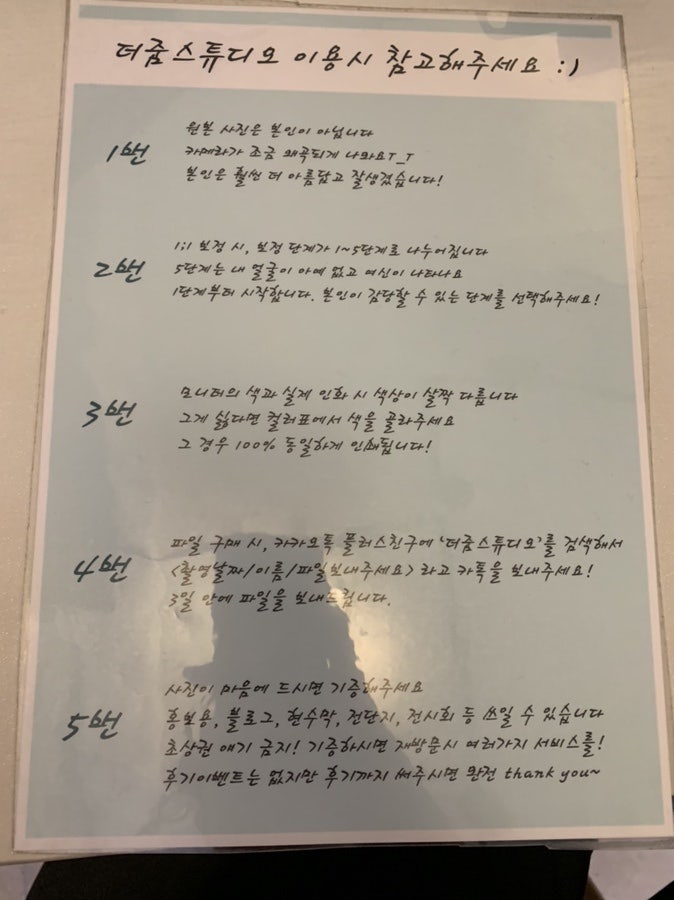 더줌스튜디오 이용시 참고해주세요 :)
1번
원본 사진은 본인이 아닙니다
카메라가 조금 왜곡되게 나와요T_T
본인은 훨씬 더 아름답고 잘생겼습니다!
2번
1:1 보정 시, 보정 단계가 1~5단계로 나누어집니다
5단계는 내 얼굴이 아예 없고 여신이 나타나요
1단계부터 시작합니다. 본인이 감당할 수 있는 단계를 선택해주세요!
3번
모니터의 색과 실제 인화 시 색상이 살짝 다릅니다
그게 싫다면 컬러표에서 색을 골라주세요
그 경우 100% 동일하게 인쇄됩니다!
4번
파일 구매 시, 카카오톡 플러스친구에 '더줌스튜디오'를 검색해서
<촬영날짜/이름/파일보내주세요> 라고 카톡을 보내주세요!
3일 안에 파일을 보내드립니다.
5번
사진이 마음에 드시면 기증해주세요
홍보용, 블로그, 현수막, 전단지, 전시회 등 쓰일 수 있습니다
초상권 얘기 금지! 기증하시면 재방문시 여러가지 서비스를!
후기이벤트는 없지만 후기까지 써주시면 완전 thank you~